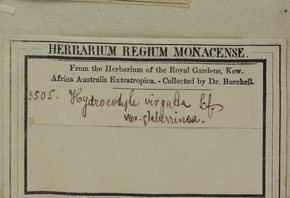 HERBARIUM REGIUM MONACENSE.
From the Herbarium of the Royal Gardens, Kew.
Africa Australis Extratropica. - Collected by Dr. Burchell.
3505. Hydrocotyle virgata Lf.
var. glaberrima.